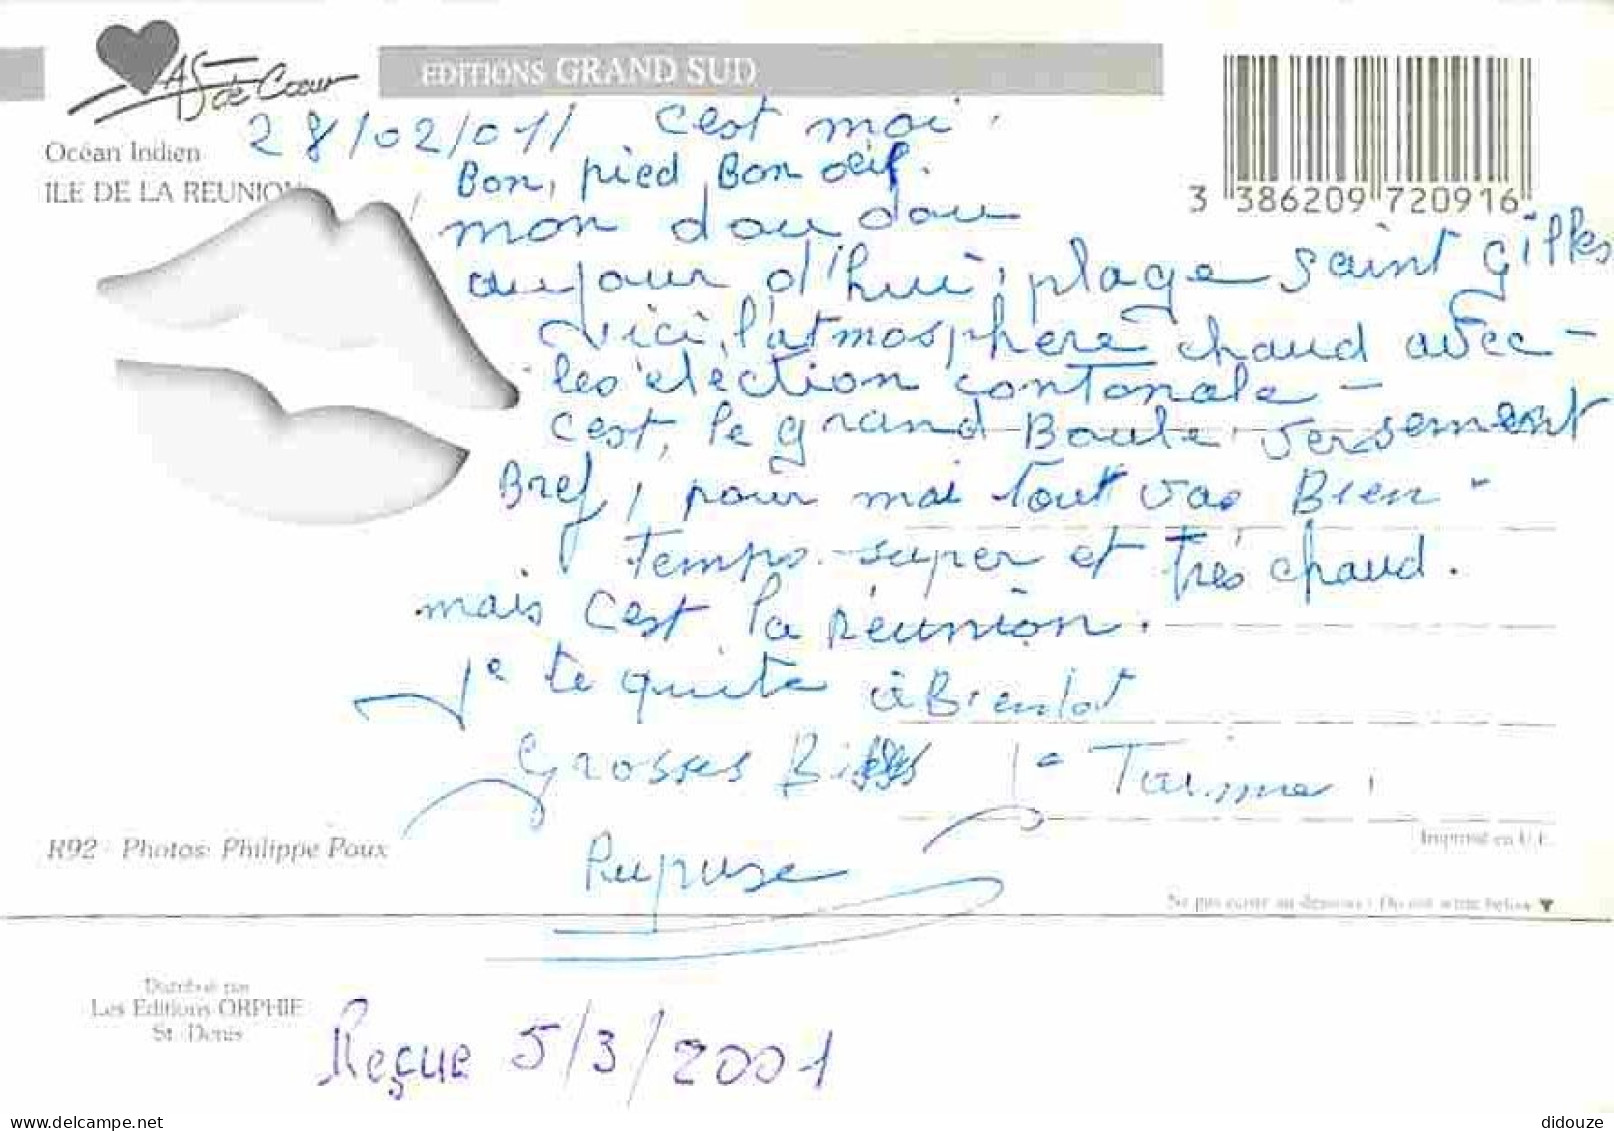 As de Coeur
EDITIONS GRAND SUD
Océan Indien
ILE DE LA REUNION
3 386209 720916
28/02/01/ c'est moi.
Bon, pied Bon oeil.
mon dou dou
aujour d'hui, plage Saint Gilles
ici, l'atmosphère chaud avec
les élection contonale -
c'est, le grand Boule versement
Bref, pour moi tout vas Bien -
Temps super et très chaud.
mais c'est la réunion.
Je te quite à Bientot
Grosses Bises Je
R92 - Photos: Philippe Poux
Imprimé en U.E.
Ne pas écrire au dessous / Do not write below ▼
Distribué par
Les Editions ORPHIE
St. Denis
Reçue 5/3/2001
www.delcampe.net
didouze